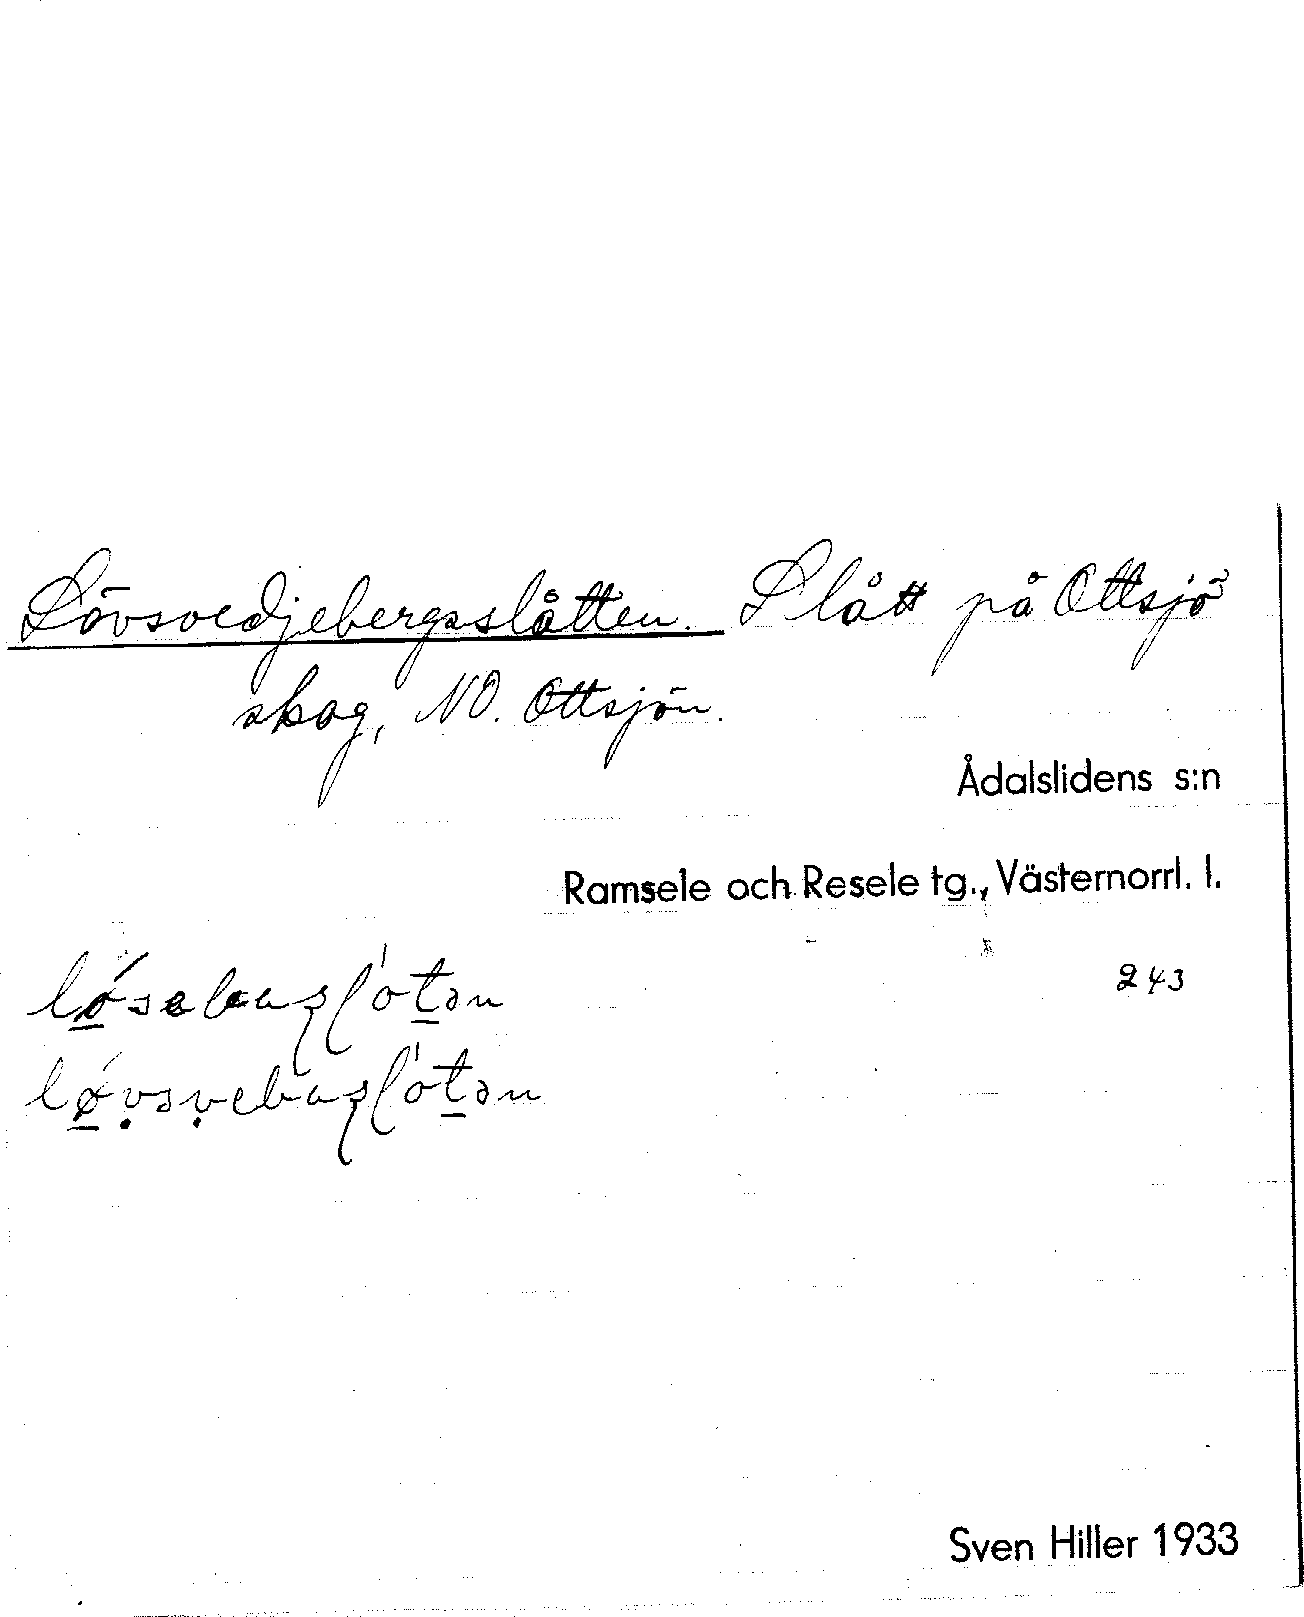 Lövsvedjebergsslåtten. Slått på Ottsjö
skog, NO. Ottsjön.
Ådalslidens s:n
Ramsele och Resele tg., Västernorrl. l.
243
Sven Hiller 1933